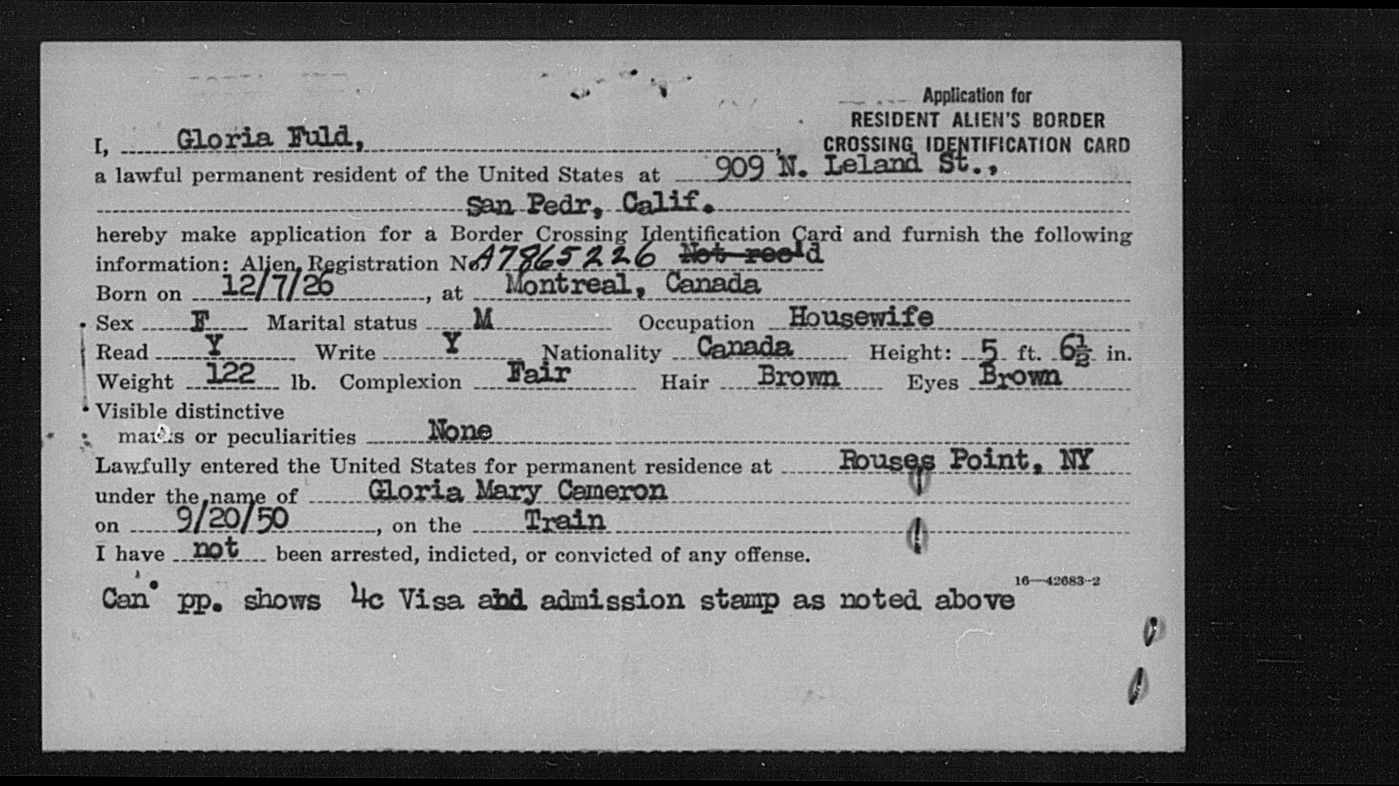 Application for
RESIDENT ALIEN'S BORDER
CROSSING IDENTIFICATION CARD
I, Gloria Fuld, ,
a lawful permanent resident of the United States at 909 N. Leland St.,
San Pedr, Calif.
hereby make application for a Border Crossing Identification Card and furnish the following
information: Alien Registration No. A7865226 Not rec'd
Born on 12/7/26, at Montreal, Canada
Sex F Marital status M Occupation Housewife
Read Y Write Y Nationality Canada Height: 5 ft. 6½ in.
Weight 122 lb. Complexion Fair Hair Brown Eyes Brown
Visible distinctive
marks or peculiarities None
Lawfully entered the United States for permanent residence at Rouses Point, NY
under the name of Gloria Mary Cameron
on 9/20/50, on the Train
I have not been arrested, indicted, or convicted of any offense.
16—42683-2
Can. pp. shows 4c Visa and admission stamp as noted above